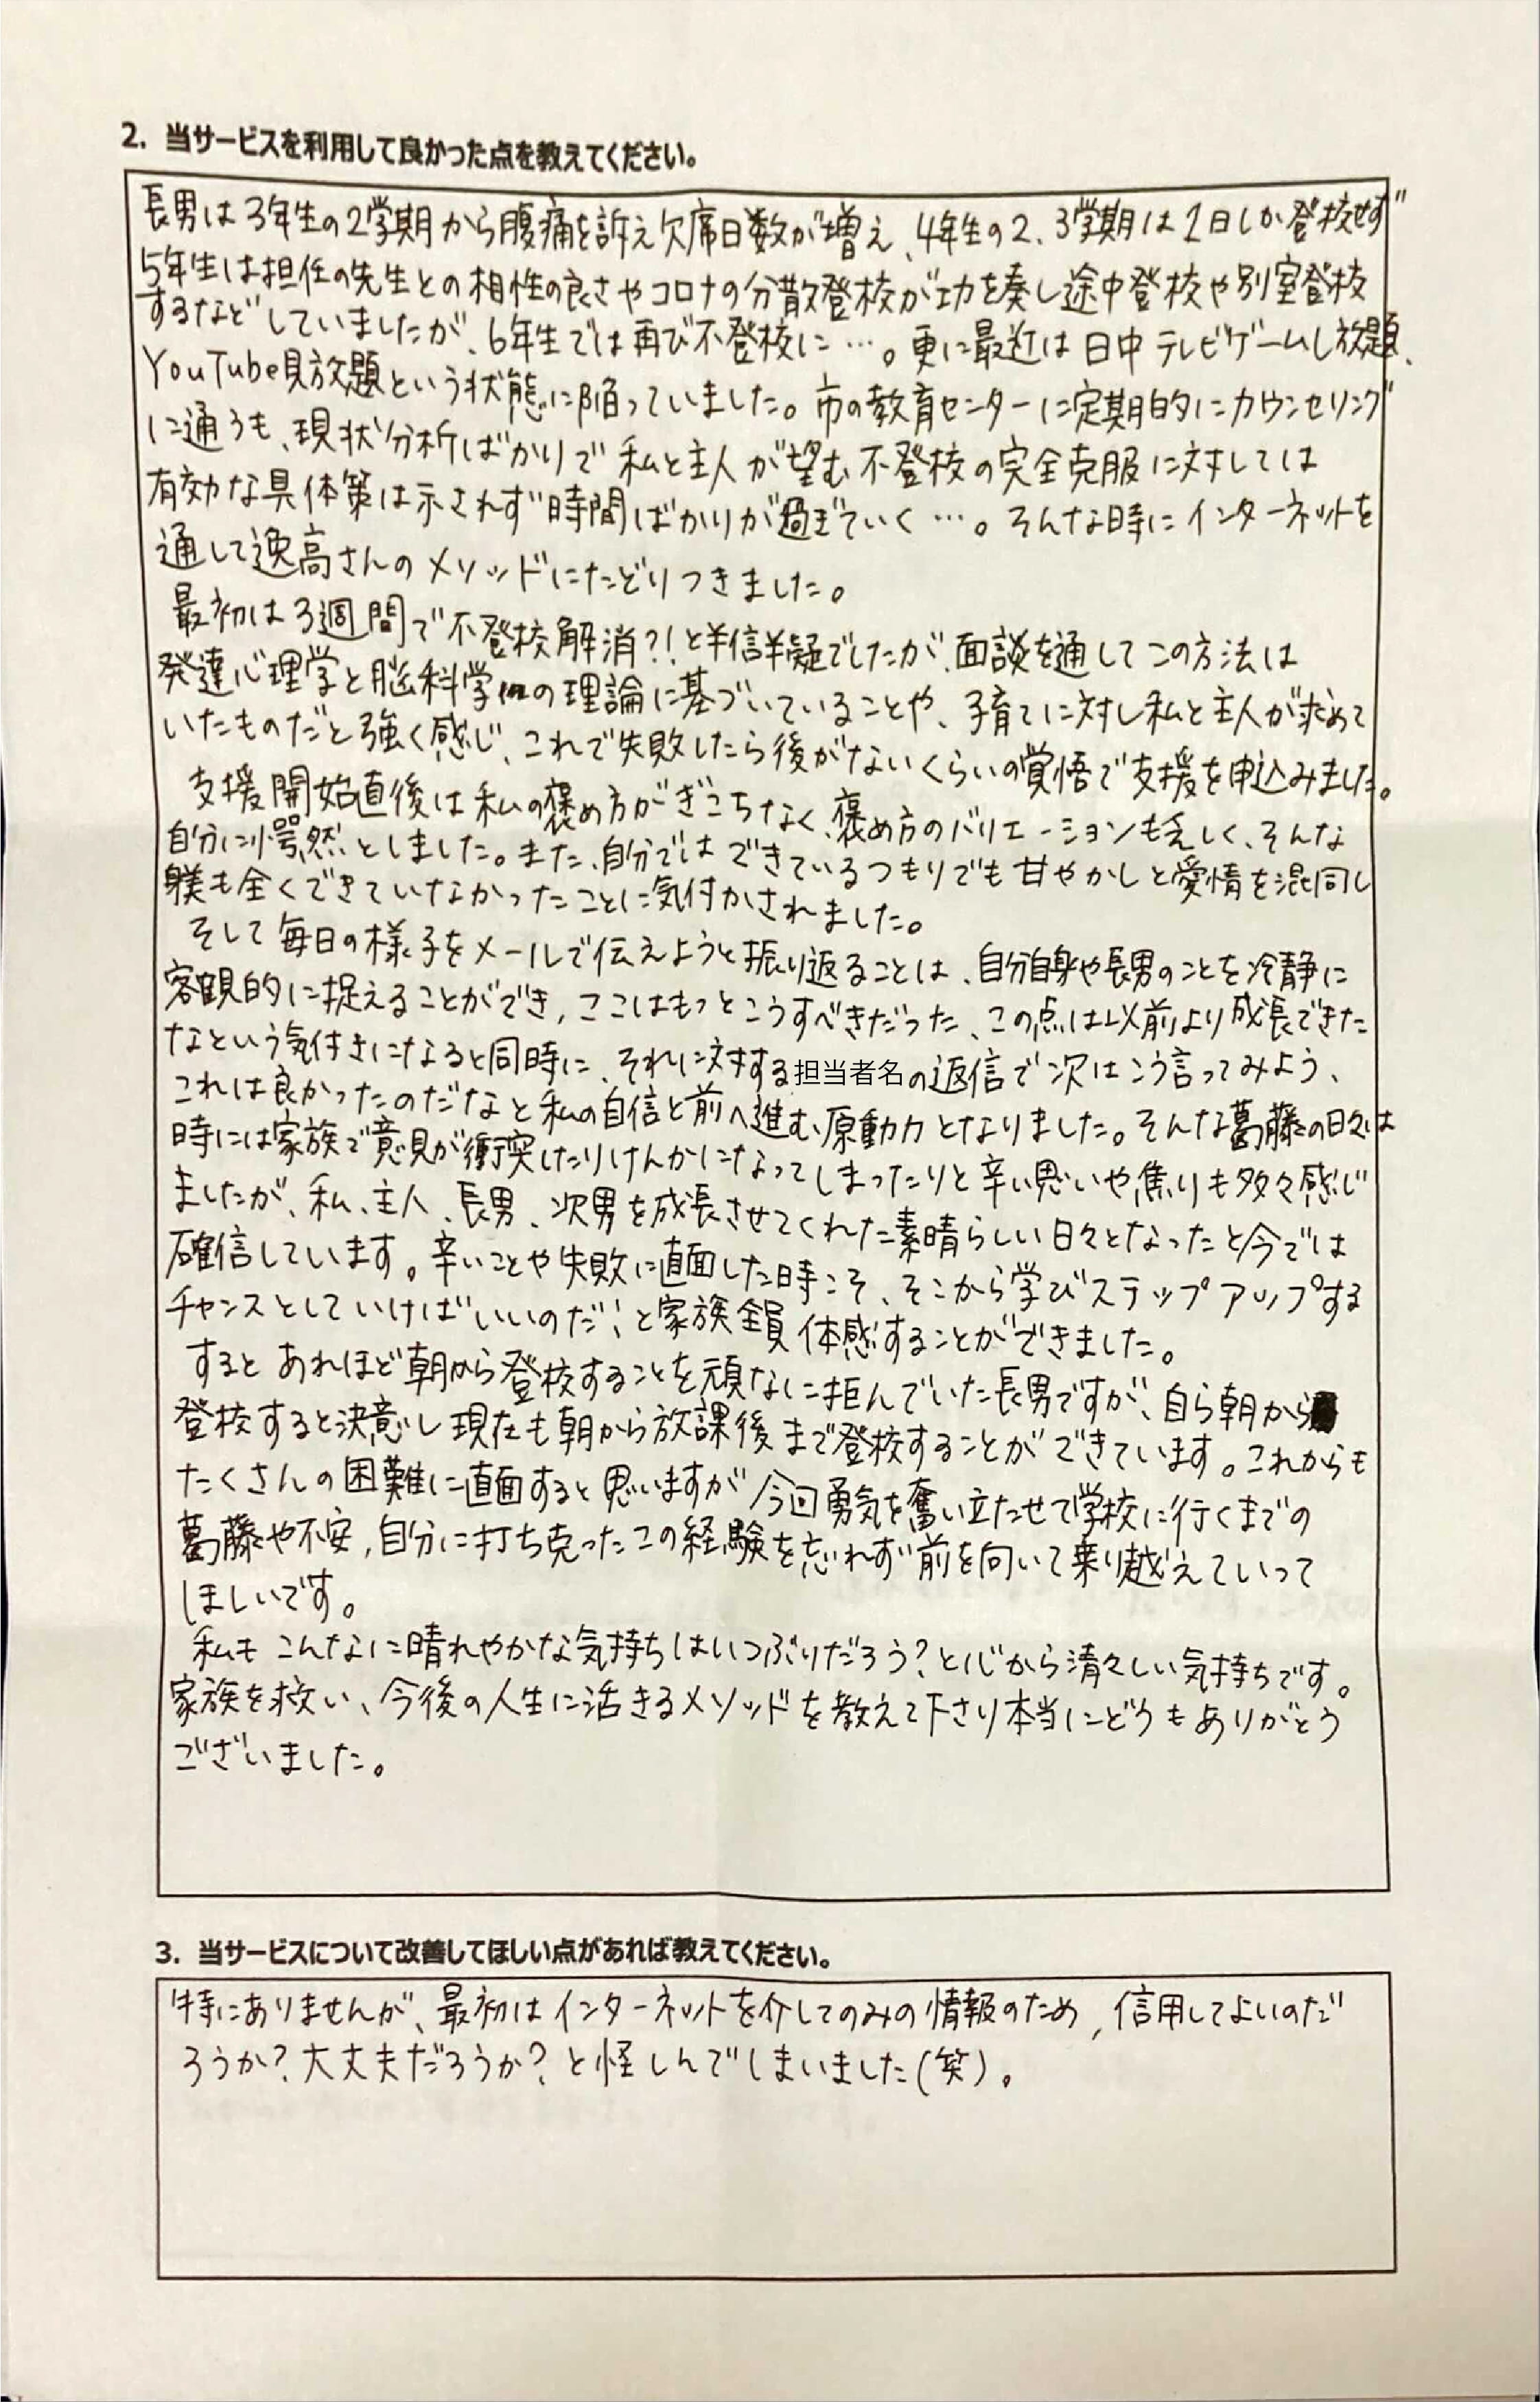 2. 当サービスを利用して良かった点を教えてください。
長男は3年生の2学期から腹痛を訴え欠席日数が増え、4年生の2、3学期は1日しか登校せず
5年生は担任の先生との相性の良さやコロナの分散登校が功を奏し途中登校や別室登校
するなどしていましたが、6年生では再び不登校に…。更に最近は日中テレビゲームし放題、
YouTube見放題という状態に陥っていました。市の教育センターに定期的にカウンセリング
に通うも、現状分析ばかりで私と主人が望む不登校の完全克服に対しては
有効な具体策は示されず時間ばかりが過ぎていく…。そんな時にインターネットを
通して逸高さんのメソッドにたどりつきました。
最初は3週間で不登校解消?!と半信半疑でしたが、面談を通してこの方法は
発達心理学と脳科学の理論に基づいていることや、子育てに対し私と主人が求めて
いたものだと強く感じ、これで失敗したら後がないくらいの覚悟で支援を申込みました。
支援開始直後は私の褒め方がぎこちなく、褒め方のバリエーションも乏しく、そんな
自分に愕然としました。また、自分ではできているつもりでも甘やかしと愛情を混同し
躾も全くできていなかったことに気付かされました。
そして毎日の様子をメールで伝えようと振り返ることは、自分自身や長男のことを冷静に
客観的に捉えることができ,ここはもっとこうすべきだった、この点は以前より成長できた
なという気付きになると同時に、それに対する担当者名の返信で次はこう言ってみよう、
これは良かったのだなと私の自信と前へ進む原動力となりました。そんな葛藤の日々は
時には家族で意見が衝突したりけんかになってしまったりと辛い思いや焦りも多々感じ
ましたが、私、主人、長男、次男を成長させてくれた素晴らしい日々となったと今では
確信しています。辛いことや失敗に直面した時こそ、そこから学びステップアップする
チャンスとしていけばいいのだ!と家族全員体感することができました。
するとあれほど朝から登校することを頑なに拒んでいた長男ですが、自ら朝から
登校すると決意し現在も朝から放課後まで登校することができています。これからも
たくさんの困難に直面すると思いますが今回勇気を奮い立たせて学校に行くまでの
葛藤や不安,自分に打ち克ったこの経験を忘れず前を向いて乗り越えていって
ほしいです。
私もこんなに晴れやかな気持ちはいつぶりだろう?と心から清々しい気持ちです。
家族を救い、今後の人生に活きるメソッドを教えて下さり本当にどうもありがとう
ございました。
3. 当サービスについて改善してほしい点があれば教えてください。
特にありませんが、最初はインターネットを介してのみの情報のため,信用してよいのだ
ろうか?大丈夫だろうか?と怪しんでしまいました(笑)。